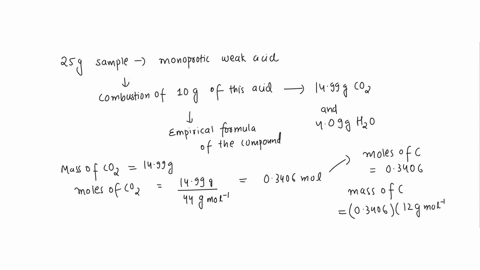 25g sample → monoprotic weak acid
↓
Combustion of 10 g of this acid → 14.99g CO2
and
4.09g H2O
↓
Empirical formula
of the compound
Mass of CO2 = 14.99g
moles of CO2 = 14.99 g / 44 g mol-1 = 0.3406 mol
moles of C
= 0.3406
mass of C
= (0.3406)(12g mol-1